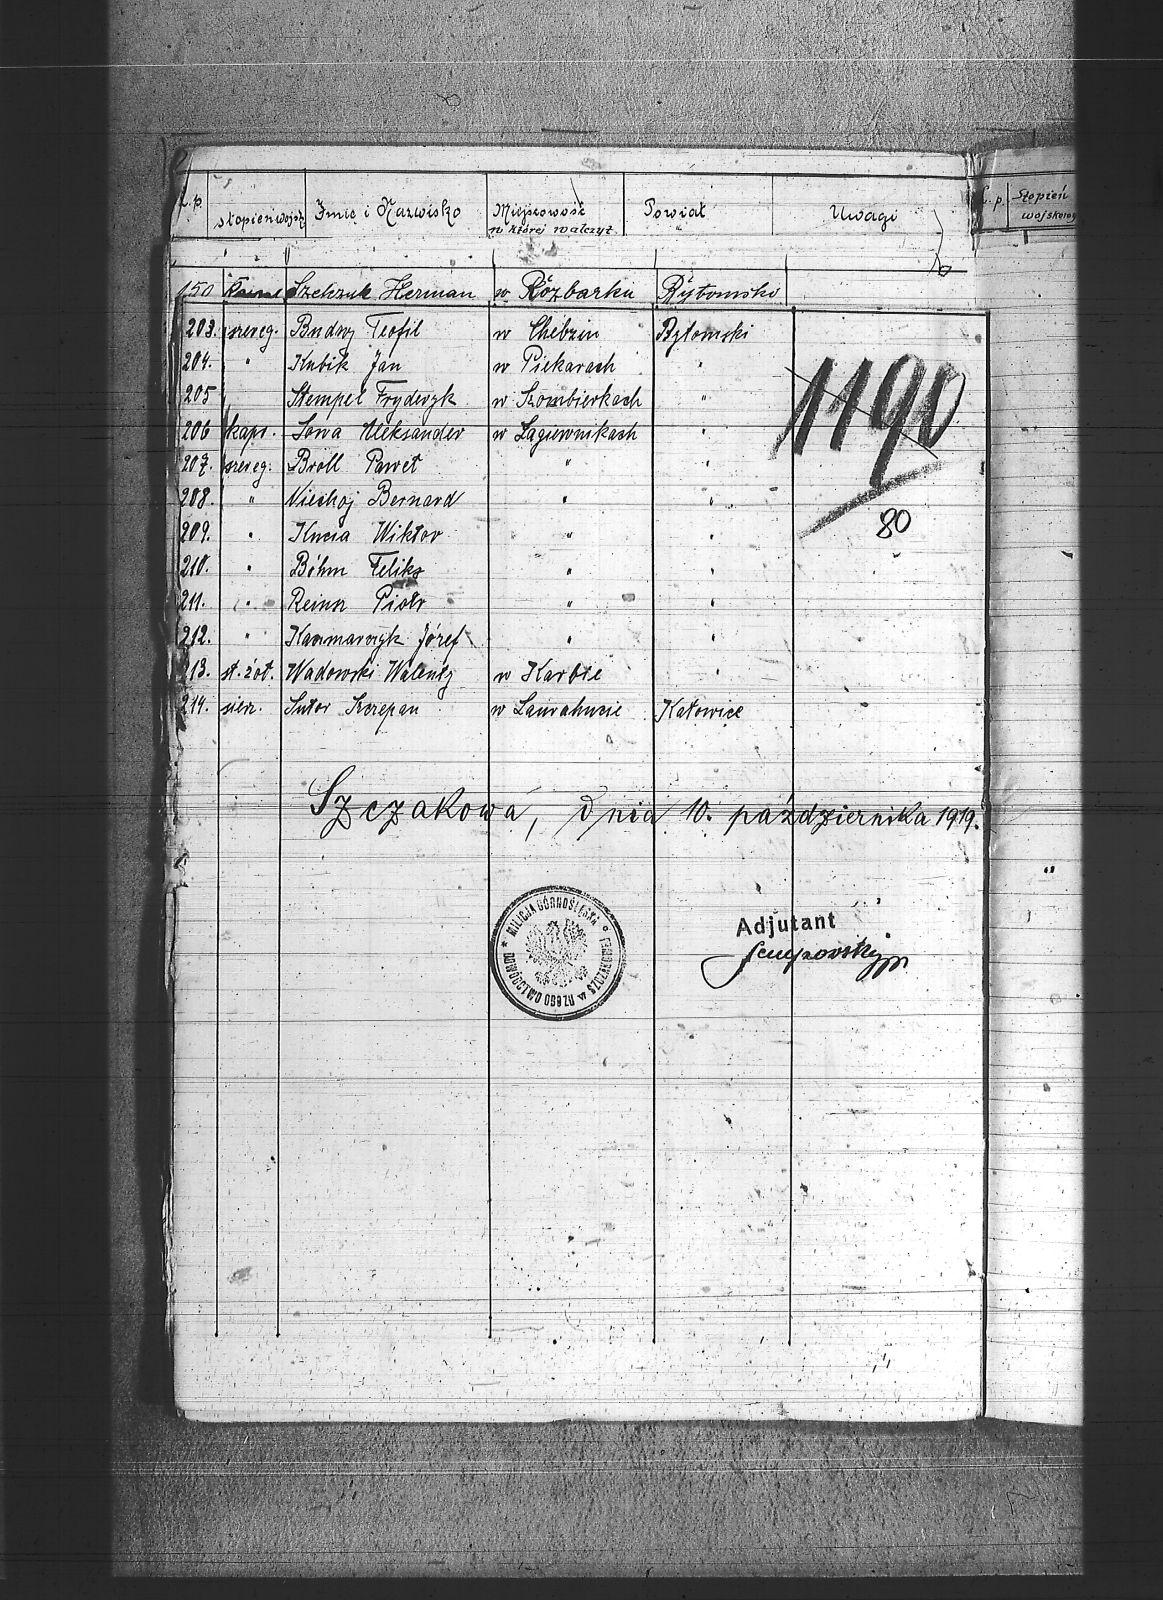 L.p. Stopień wojsk. Imię i Nazwisko Miejscowość w której walczył Powiat Uwagi
L.p. Stopień wojskowy
150 Szelczuk Herman w Rozbarku Bytomski
203. szereg. Budny Teofil w Chebziu Bytomski
204. " Kubik Jan w Piekarach "
205 Stempel Fryderyk w Szombierkach "
206 kapr. Sowa Aleksander w Łagiewnikach "
207. szereg. Broll Paweł " "
208. " Niechoj Bernard " "
209. " Kucia Wiktor " "
210. " Böhm Feliks " "
211. " Piotr " "
212. " Kaczmarczyk Józef " "
213. st. żoł. Wadowski Walenty w Karbie "
214. sierż. Sutor Szczepan w Laurahucie Katowice
1190
80
Szczakowa, dnia 10. października 1919.
MILICJA GÓRNOŚLĄSKA
DOWÓDZTWO OBOZU w SZCZAKOWEJ
Adjutant